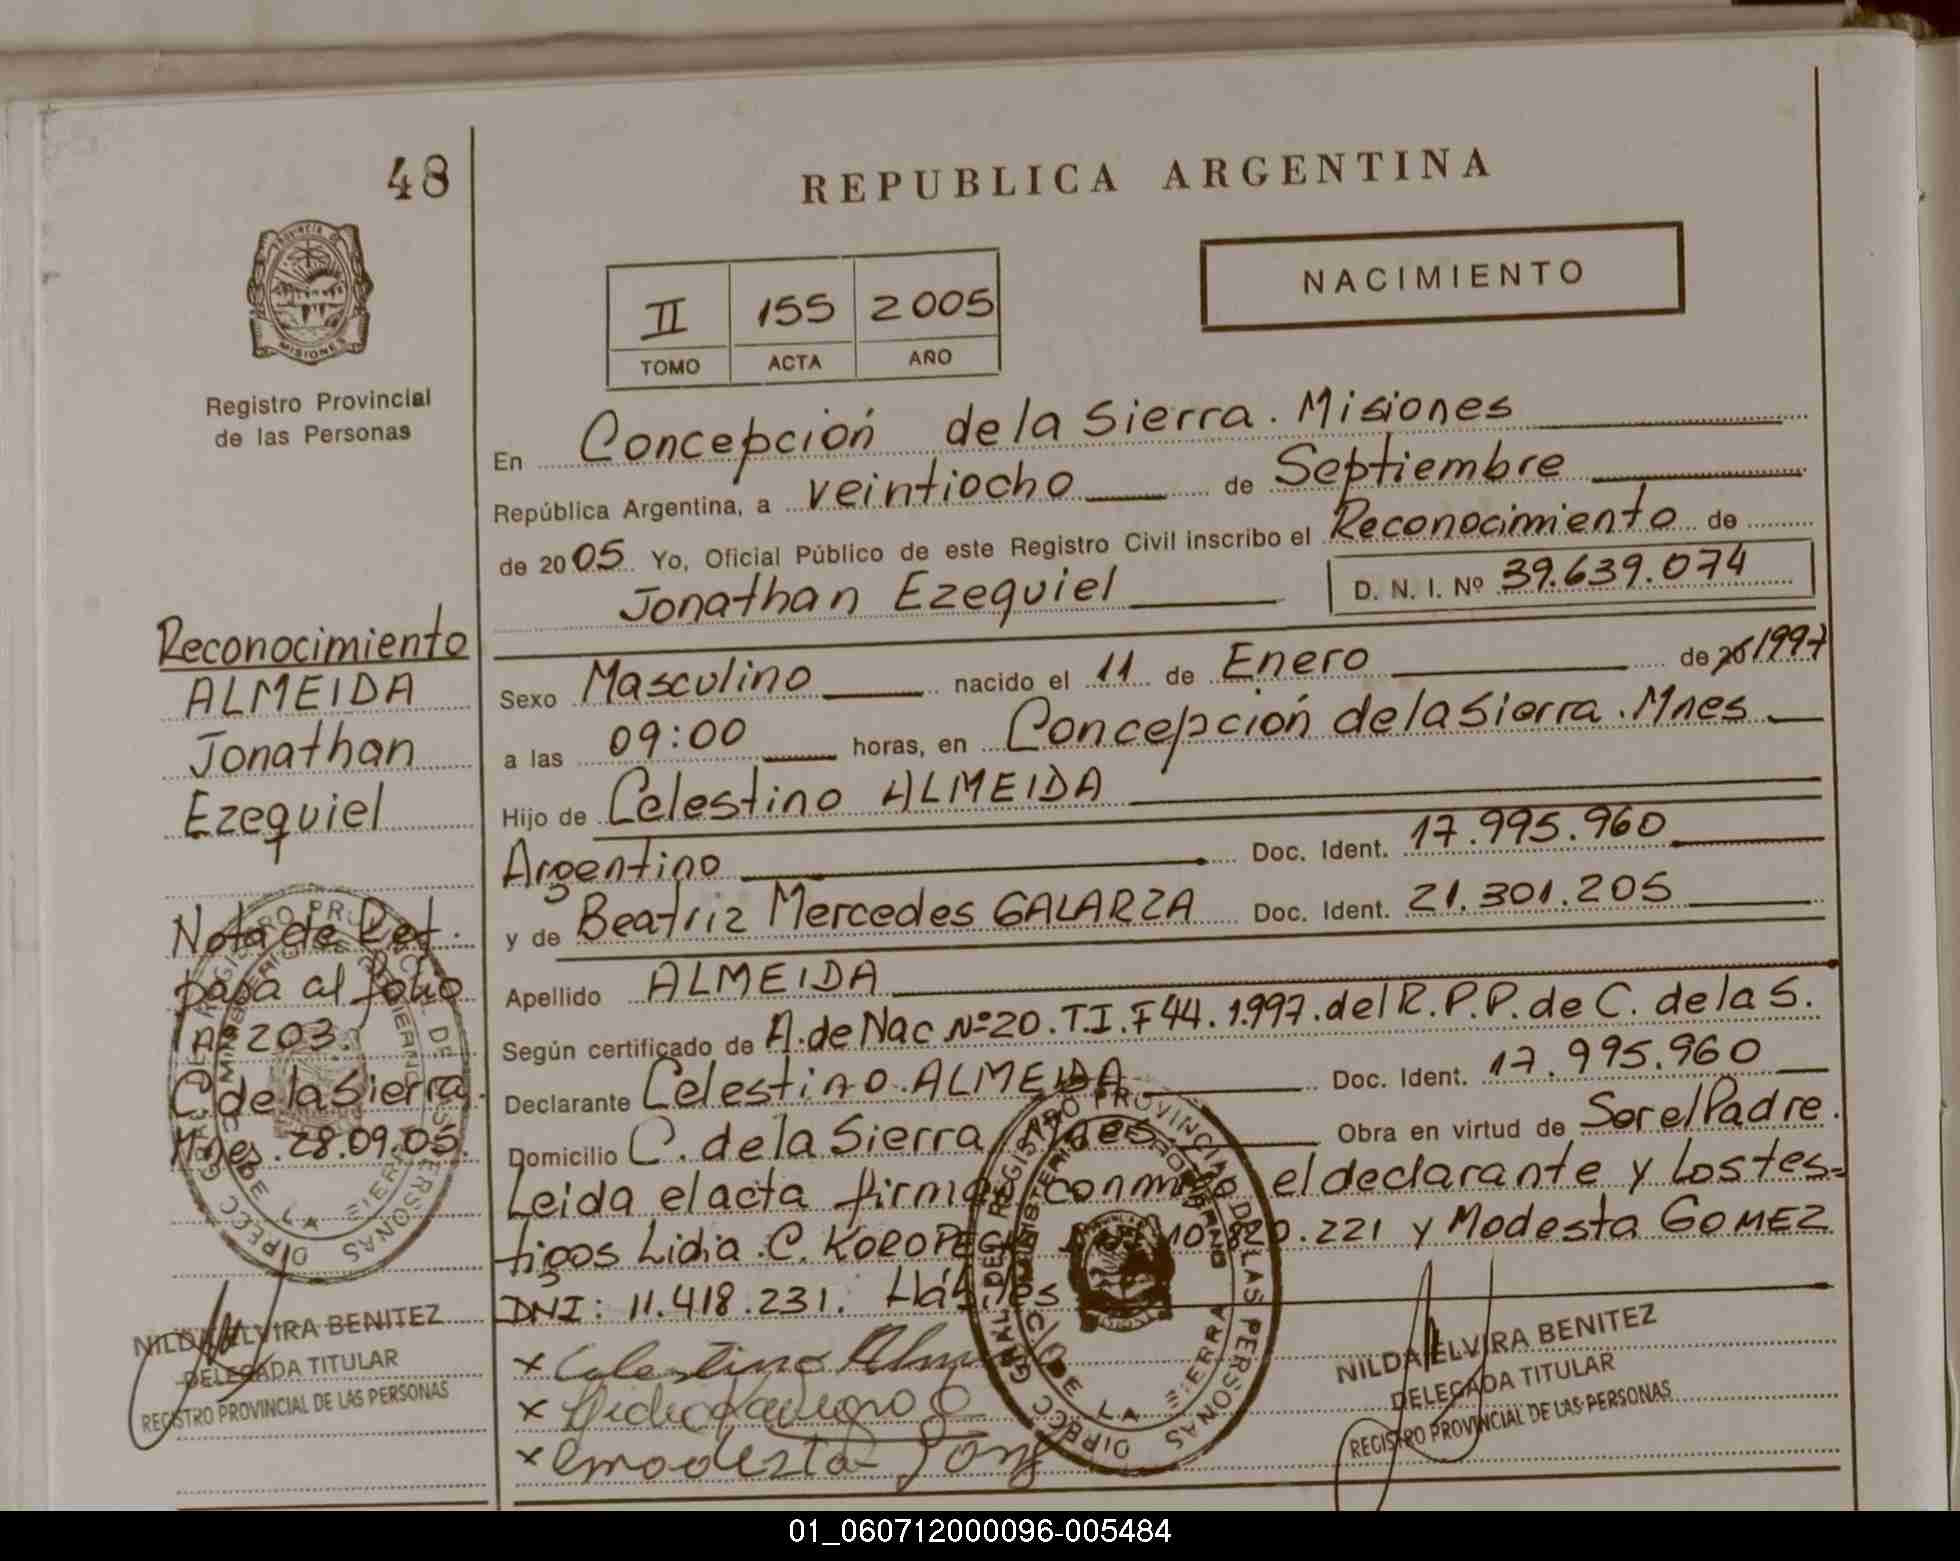 48
REPUBLICA ARGENTINA
PROVINCIA DE
MISIONES
Registro Provincial
de las Personas
NACIMIENTO
II 155 2005
TOMO ACTA AÑO
En Concepción de la Sierra. Misiones
República Argentina, a veintiocho de Septiembre
de 2005 Yo, Oficial Público de este Registro Civil inscribo el Reconocimiento de
Jonathan Ezequiel D. N. I. Nº 39.639.074
Sexo Masculino nacido el 11 de Enero de 20 1997
a las 09:00 horas, en Concepción de la Sierra. Mnes
Hijo de Celestino ALMEIDA
Argentino Doc. Ident. 17.995.960
y de Beatriz Mercedes GALARZA Doc. Ident. 21.301.205
Apellido ALMEIDA
Según certificado de A. de Nac Nº 20. T.I. F 44. 1.997. del R.P.P. de C. de la S.
Declarante Celestino ALMEIDA Doc. Ident. 17.995.960
Domicilio C. de la Sierra Mnes Obra en virtud de Ser el Padre.
Leida el acta firman conmigo el declarante y los tes-
tigos Lidia C. 10.820.221 y Modesta GOMEZ
DNI: 11.418.231. Hábiles
x Celestino
x
x modesta
Reconocimiento
ALMEIDA
Jonathan
Ezequiel
Nota de Ref.
pasa al folio
Nº 203.
C. de la Sierra.
Mnes. 28.09.05.
DIRECC. GRAL. DEL REGISTRO PROVINCIAL DE LAS PERSONAS
MINISTERIO DE GOBIERNO
C. DE LA SIERRA
NILDA ELVIRA BENITEZ
DELEGADA TITULAR
REGISTRO PROVINCIAL DE LAS PERSONAS
DIRECC. GRAL. DEL REGISTRO PROVINCIAL DE LAS PERSONAS
MINISTERIO DE GOBIERNO
C. DE LA SIERRA
NILDA ELVIRA BENITEZ
DELEGADA TITULAR
REGISTRO PROVINCIAL DE LAS PERSONAS
01_060712000096-005484